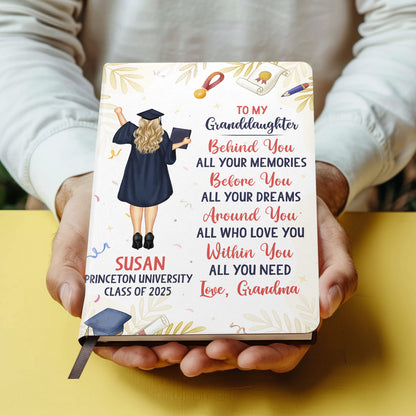 TO MY
Granddaughter
Behind You
ALL YOUR MEMORIES
Before You
ALL YOUR DREAMS
Around You
ALL WHO LOVE YOU
Within You
ALL YOU NEED
Love, Grandma
SUSAN
PRINCETON UNIVERSITY
CLASS OF 2025